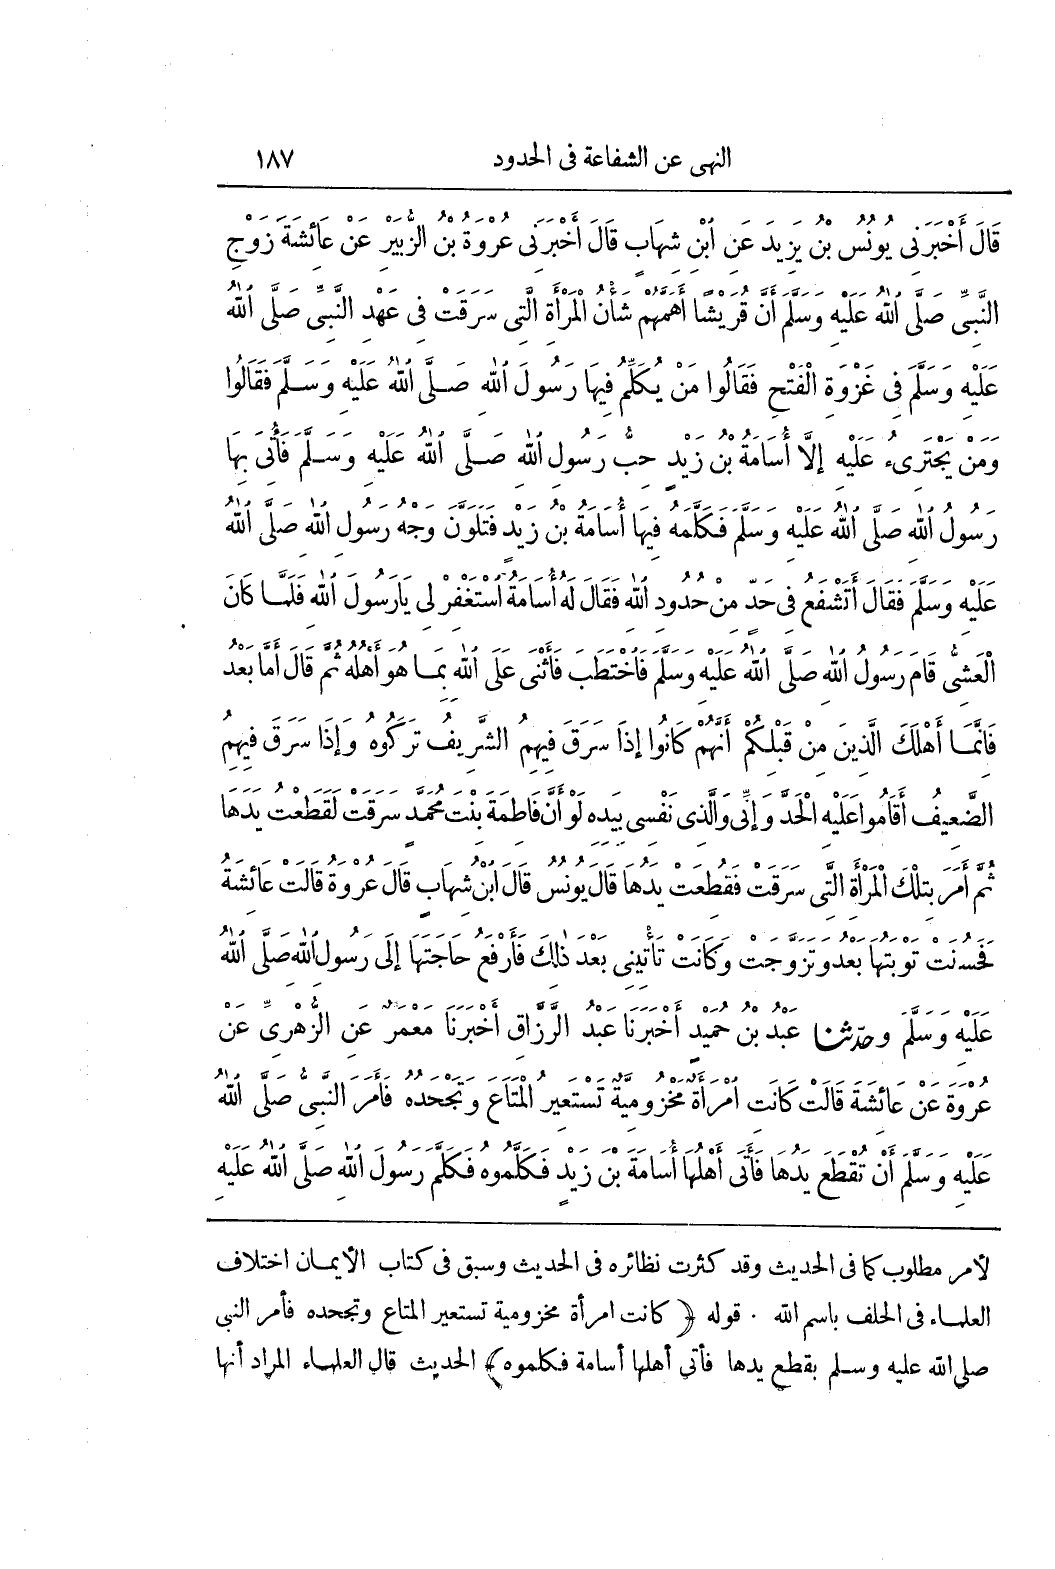 النهى عن الشفاعة فى الحدود ١٨٧
قَالَ أَخْبَرَنِى يُونُسُ بْنُ يَزِيدَ عَنِ ابْنِ شِهَابٍ قَالَ أَخْبَرَنِى عُرْوَةُ بْنُ الزُّبَيْرِ عَنْ عَائِشَةَ زَوْجِ
النَّبِىِّ صَلَّى اللهُ عَلَيْهِ وَسَلَّمَ أَنَّ قُرَيْشًا أَهَمَّهُمْ شَأْنُ الْمَرْأَةِ الَّتِى سَرَقَتْ فِى عَهْدِ النَّبِىِّ صَلَّى اللهُ
عَلَيْهِ وَسَلَّمَ فِى غَزْوَةِ الْفَتْحِ فَقَالُوا مَنْ يُكَلِّمُ فِيهَا رَسُولَ اللهِ صَلَّى اللهُ عَلَيْهِ وَسَلَّمَ فَقَالُوا
وَمَنْ يَجْتَرِىءُ عَلَيْهِ إِلَّا أُسَامَةُ بْنُ زَيْدٍ حِبُّ رَسُولِ اللهِ صَلَّى اللهُ عَلَيْهِ وَسَلَّمَ فَأُتِىَ بِهَا
رَسُولُ اللهِ صَلَّى اللهُ عَلَيْهِ وَسَلَّمَ فَكَلَّمَهُ فِيهَا أُسَامَةُ بْنُ زَيْدٍ فَتَلَوَّنَ وَجْهُ رَسُولِ اللهِ صَلَّى اللهُ
عَلَيْهِ وَسَلَّمَ فَقَالَ أَتَشْفَعُ فِى حَدٍّ مِنْ حُدُودِ اللهِ فَقَالَ لَهُ أُسَامَةُ اسْتَغْفِرْ لِى يَارَسُولَ اللهِ فَلَمَّا كَانَ
الْعَشِىُّ قَامَ رَسُولُ اللهِ صَلَّى اللهُ عَلَيْهِ وَسَلَّمَ فَاخْتَطَبَ فَأَثْنَى عَلَى اللهِ بِمَا هُوَ أَهْلُهُ ثُمَّ قَالَ أَمَّا بَعْدُ
فَإِنَّمَا أَهْلَكَ الَّذِينَ مِنْ قَبْلِكُمْ أَنَّهُمْ كَانُوا إِذَا سَرَقَ فِيهِمُ الشَّرِيفُ تَرَكُوهُ وَإِذَا سَرَقَ فِيهِمُ
الضَّعِيفُ أَقَامُوا عَلَيْهِ الْحَدَّ وَإِنِّى وَالَّذِى نَفْسِى بِيَدِهِ لَوْ أَنَّ فَاطِمَةَ بِنْتَ مُحَمَّدٍ سَرَقَتْ لَقَطَعْتُ يَدَهَا
ثُمَّ أَمَرَ بِتِلْكَ الْمَرْأَةِ الَّتِى سَرَقَتْ فَقُطِعَتْ يَدُهَا قَالَ يُونُسُ قَالَ ابْنُ شِهَابٍ قَالَ عُرْوَةُ قَالَتْ عَائِشَةُ
فَحَسُنَتْ تَوْبَتُهَا بَعْدُ وَتَزَوَّجَتْ وَكَانَتْ تَأْتِينِى بَعْدَ ذٰلِكَ فَأَرْفَعُ حَاجَتَهَا إِلَى رَسُولِ اللهِ صَلَّى اللهُ
عَلَيْهِ وَسَلَّمَ وحدثنا عَبْدُ بْنُ حُمَيْدٍ أَخْبَرَنَا عَبْدُ الرَّزَّاقِ أَخْبَرَنَا مَعْمَرٌ عَنِ الزُّهْرِىِّ عَنْ
عُرْوَةَ عَنْ عَائِشَةَ قَالَتْ كَانَتِ امْرَأَةٌ مَخْزُومِيَّةٌ تَسْتَعِيرُ الْمَتَاعَ وَتَجْحَدُهُ فَأَمَرَ النَّبِىُّ صَلَّى اللهُ
عَلَيْهِ وَسَلَّمَ أَنْ تُقْطَعَ يَدُهَا فَأَتَى أَهْلُهَا أُسَامَةَ بْنَ زَيْدٍ فَكَلَّمُوهُ فَكَلَّمَ رَسُولَ اللهِ صَلَّى اللهُ عَلَيْهِ
لأمر مطلوب كما فى الحديث وقد كثرت نظائره فى الحديث وسبق فى كتاب الأيمان اختلاف
العلماء فى الحلف باسم الله . قوله ﴿ كانت امرأة مخزومية تستعير المتاع وتجحده فأمر النبى
صلى الله عليه وسلم بقطع يدها فأتى أهلها أسامة فكلموه﴾ الحديث قال العلماء المراد أنها